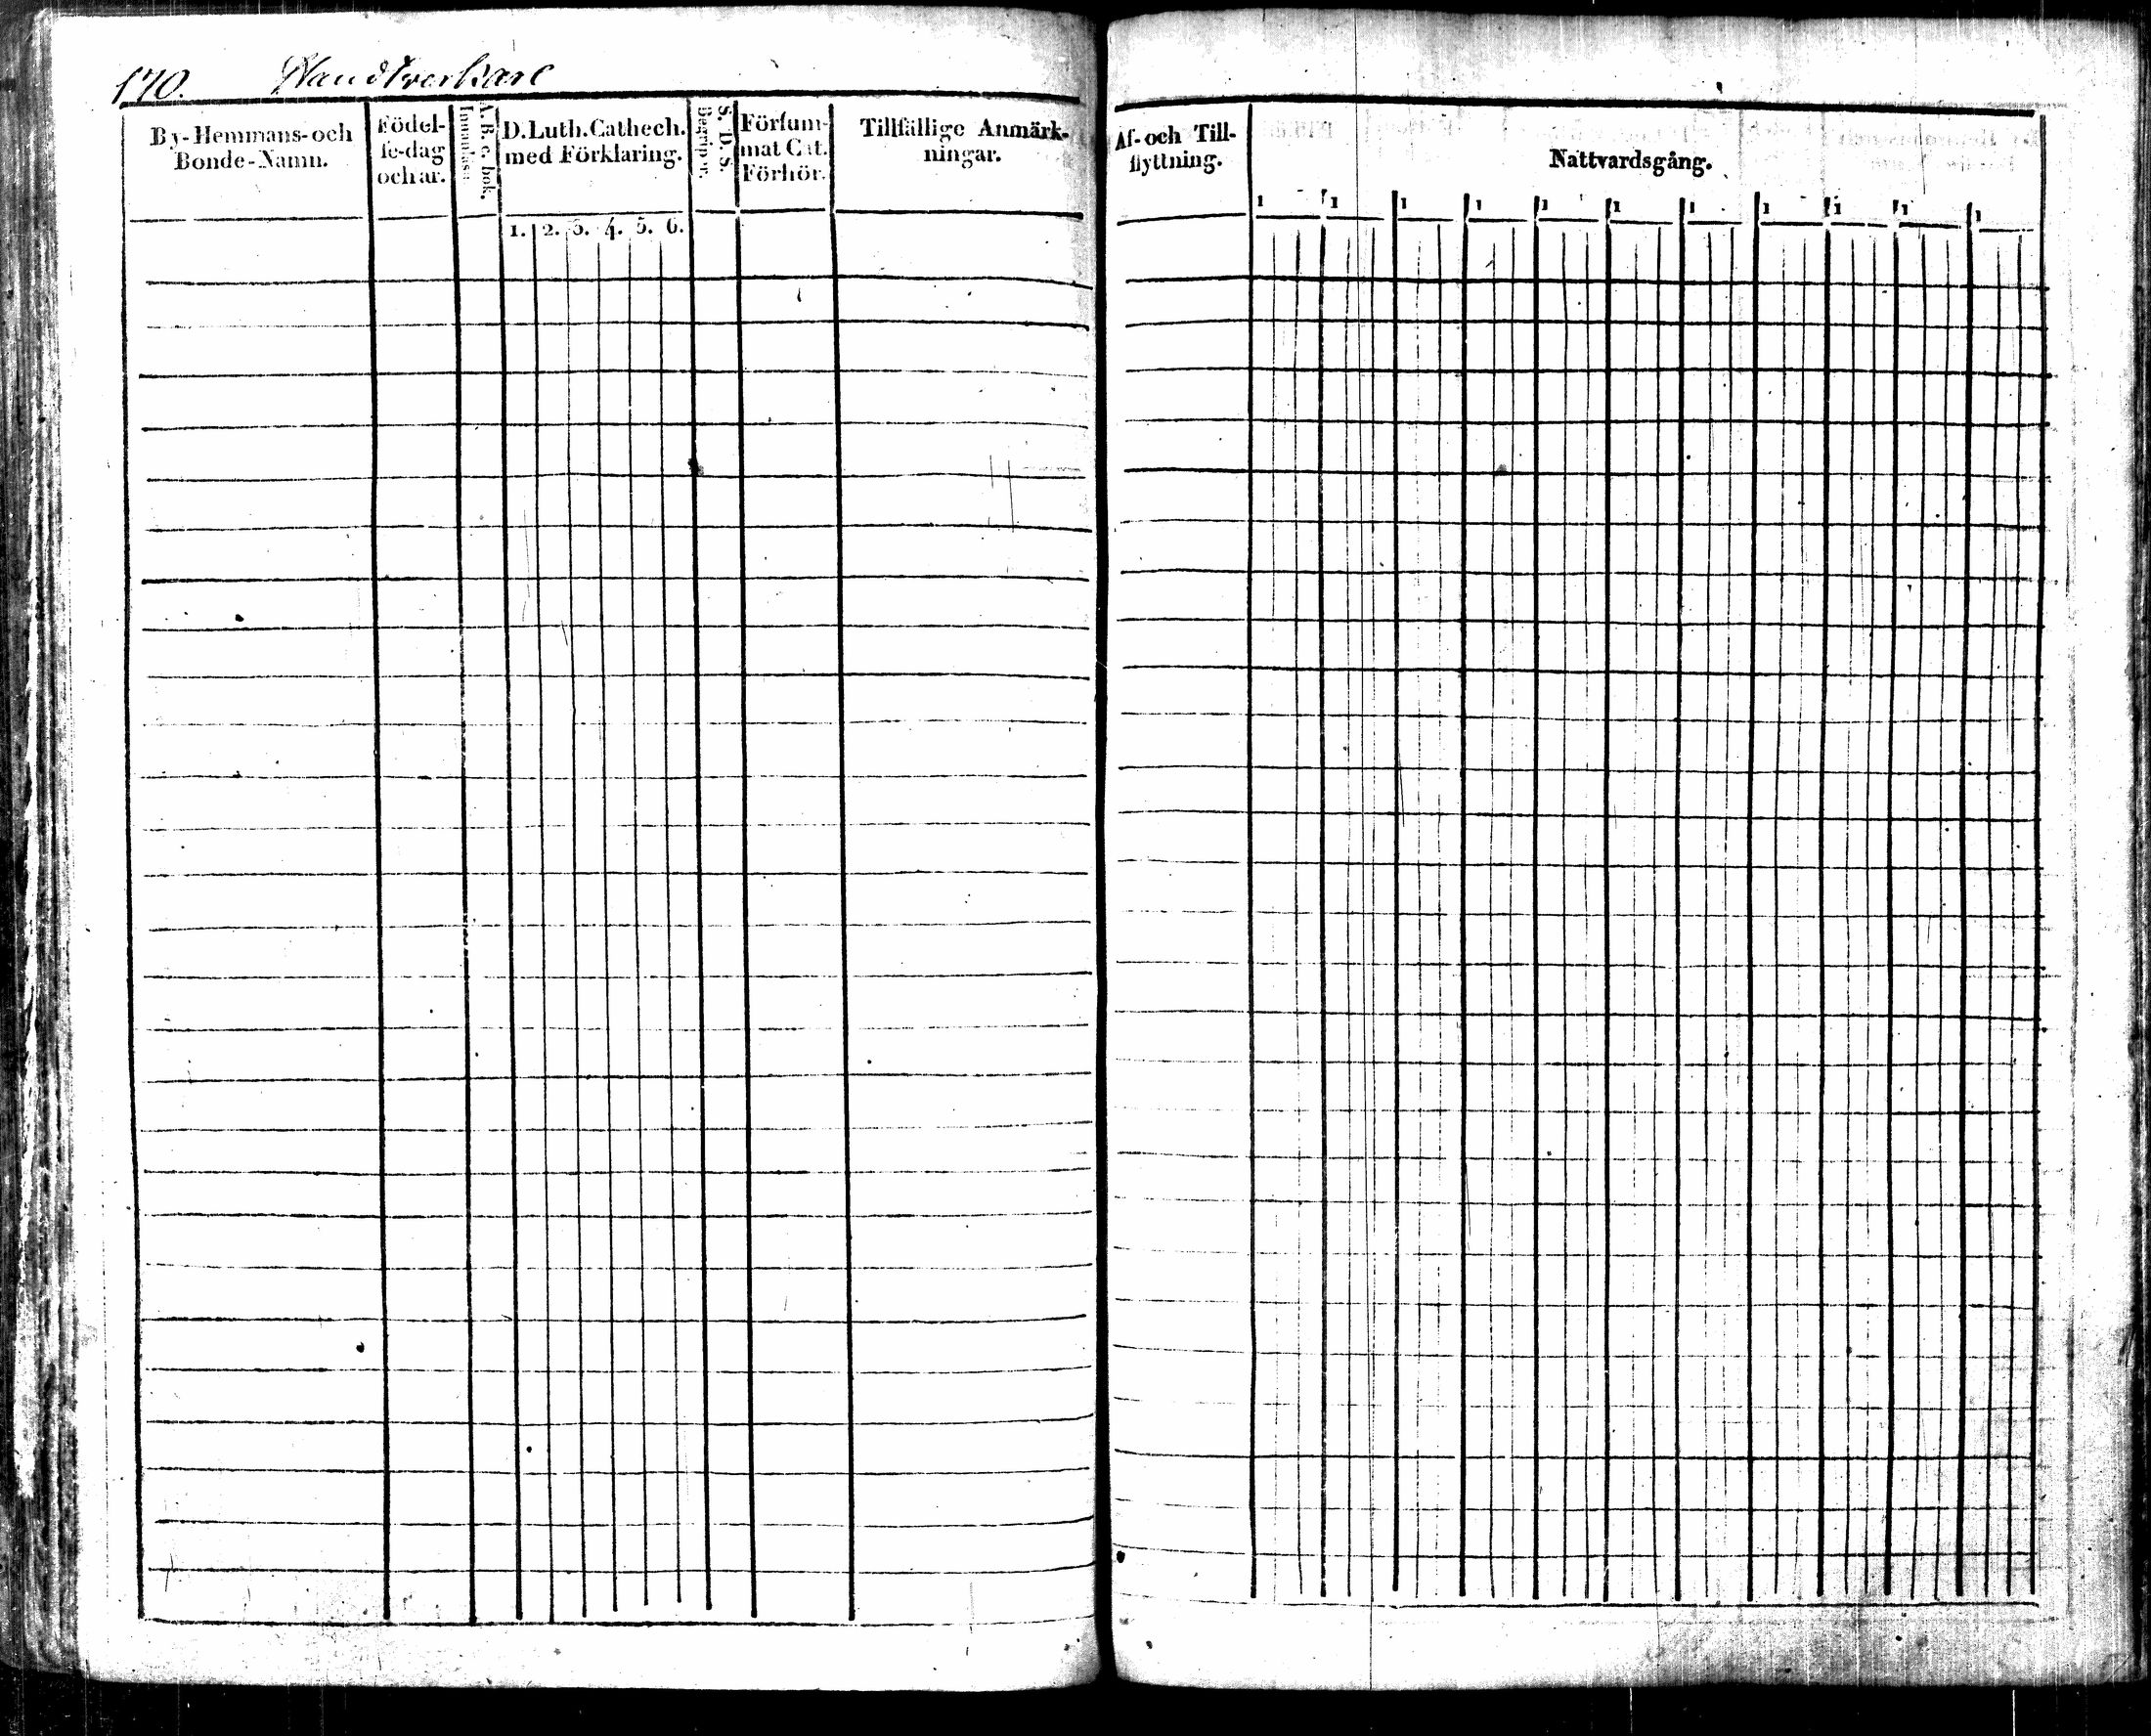 170. Handtverkare
By-Hemmans- och
Bonde-Namn.
Födel-
se-dag
och år.
A. B. c. bok.
Innanläsn.
D. Luth. Cathech.
med Förklaring.
1. 2. 3. 4. 5. 6.
S. D. S.
Begrip
Försum-
mat Cat.
Förhör.
Tillfällige Anmärk-
ningar.
Af- och Till-
flyttning.
Nattvardsgång.
1 1 1 1 1 1 1 1 1 1 1